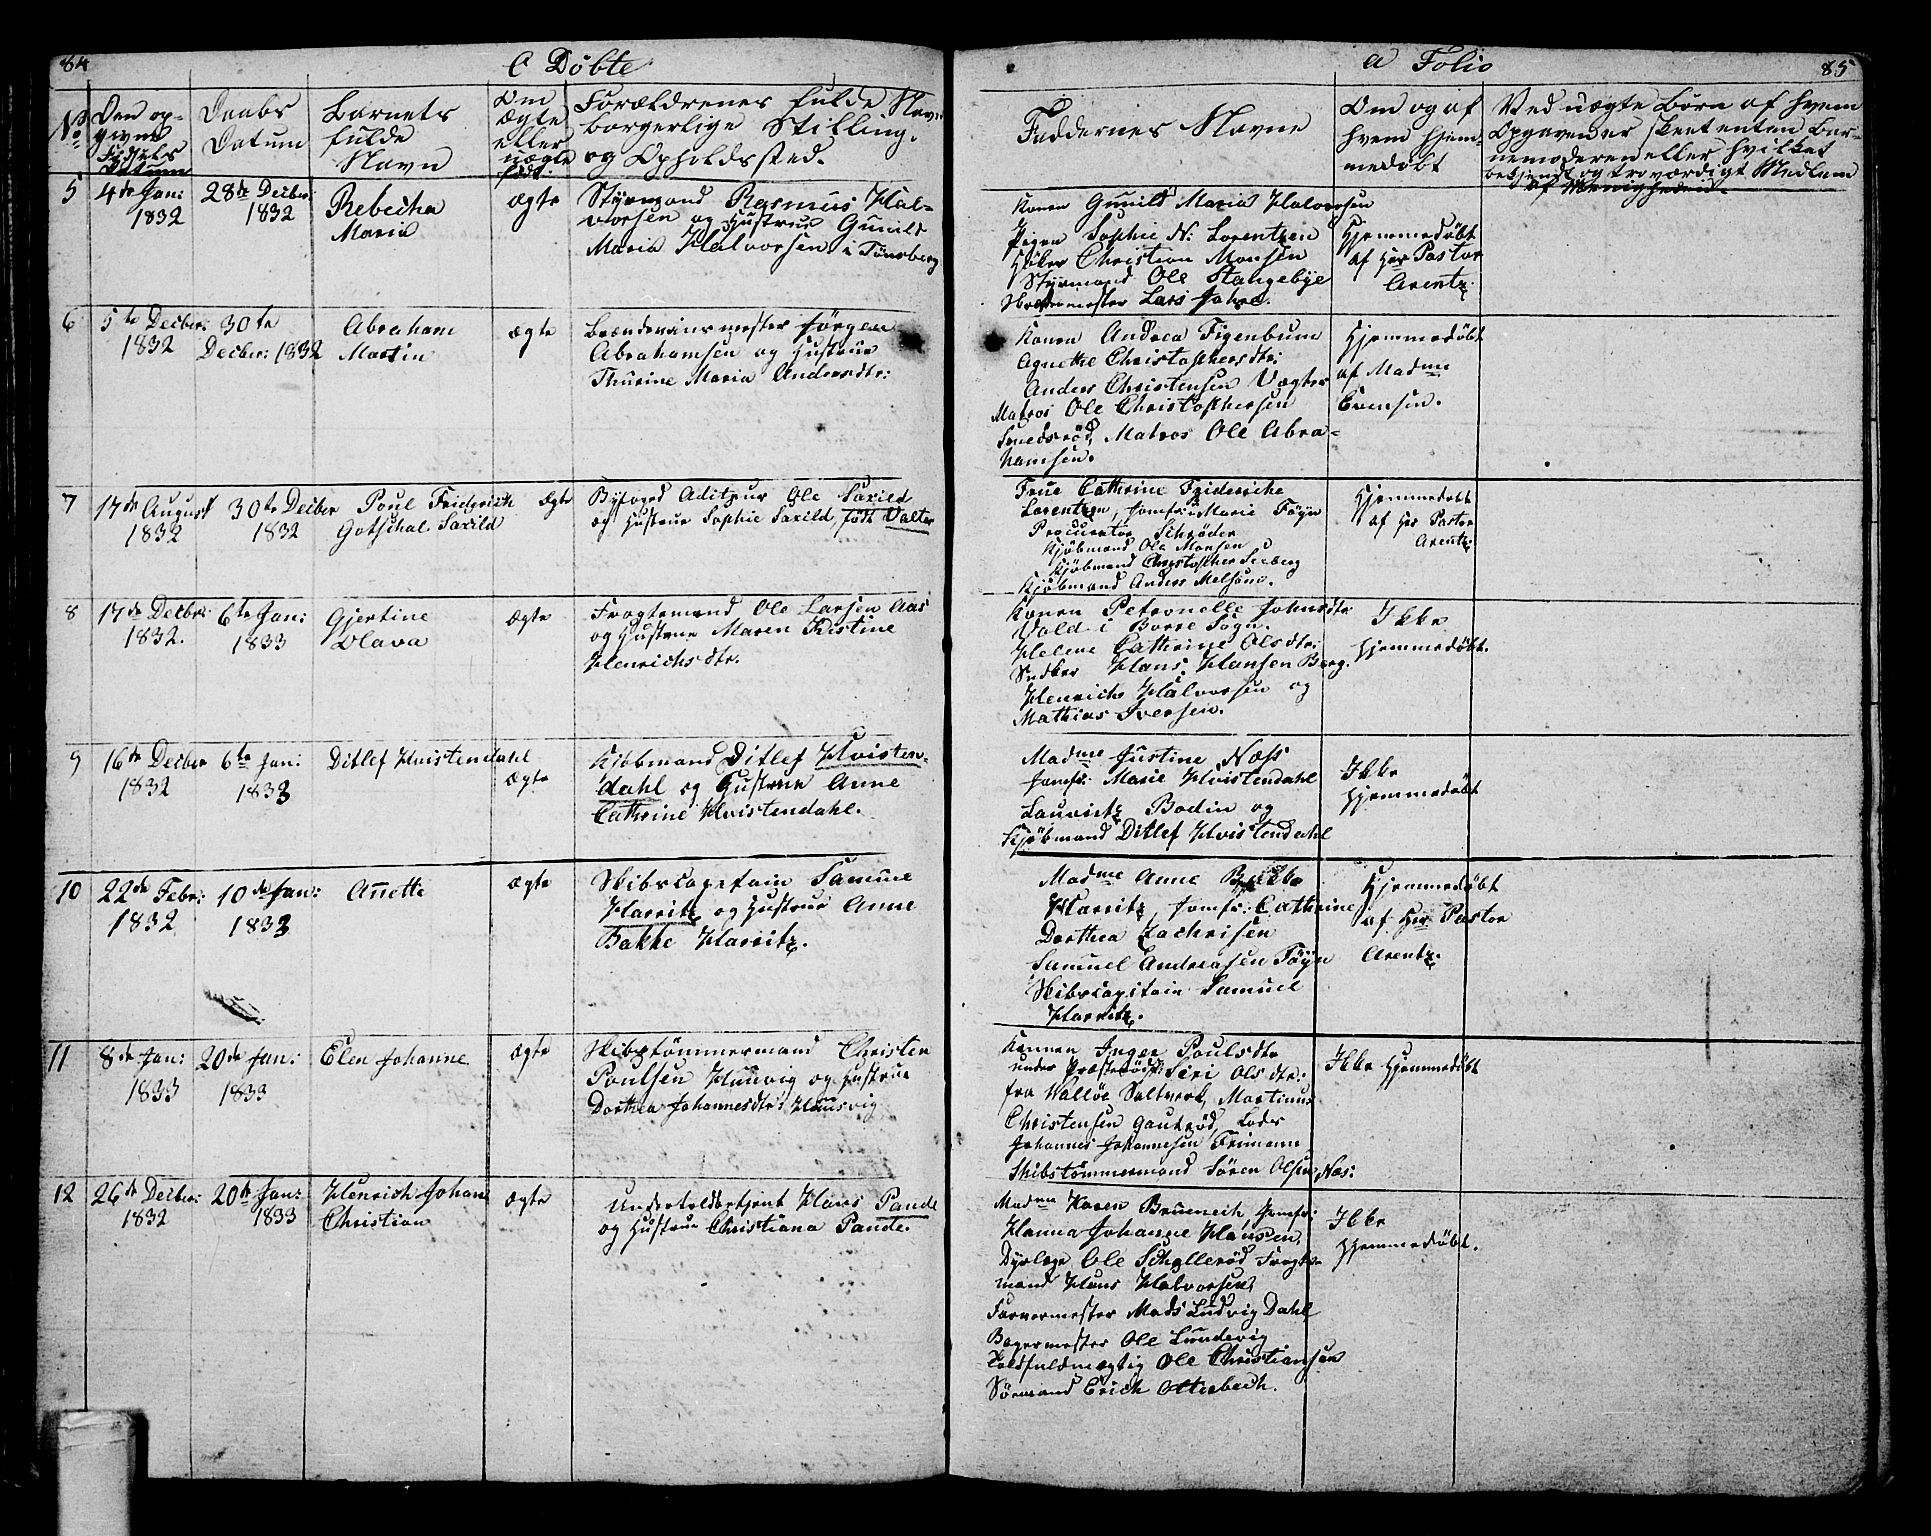 84
C Döbte
No
Den op-
givne
Födsels
Datum
Daabs
Datum
Barnets
fulde
Navn
Om
ægte
eller
uægte
født.
Forældrenes fulde Navn
borgerlige Stilling.
og Opholdssted.
5
4de Jan:
1832
28de Decbr:
1832
Rebecka
Maria
ægte
Styrmand Rasmus Hal-
vorsen og Hustrue Gunild
Maria Halvorsen i Tønsberg
6
5te Decbr:
1832
30te
Decbr: 1832
Abraham
Martin
ægte
Brændeviinsmester Jörgen
Abrahamsen og Hustrue
Thurine Maria Andersdtr:
7
17de August
1832
30te Decbr
1832
Poul Friderich
Gotschal. Saxild
Ægte
Byfoged Auditeur Ole Saxild
og Hustrue Sophie Saxild, født Valter
8
17de Decbr:
1832.
6te Jan:
1833
Gjertine
Olava
ægte
Fragtemand Ole Larsen Aas
og Hustrue Maren Kistine
Henrichsdtr.
9
16de Decbr
1832
6te Jan:
1833
Ditlef Hvistendahl
ægte
Kiöbmand Ditlef Hvisten-
dahl og Hustrue Anne
Cathrine Hvistendahl.
10
22de Febr:
1832
10de Jan:
1833
Anette
ægte
Skibscapitain Samuel
Harritz og Hustrue Anne
Bakke Harritz.
11
8de Jan:
1833
20de Jan:
1833
Elen Johanne
ægte
Skibstömmermand Christen
Poulsen Huusvig og Hustrue
Dorthea Johannesdtr: Huusvig
12
26de Decbr:
1832
20de Jan:
1833
Henrich Johan
Christian
ægte
Undertoldbetjent Hans Pande
og Hustrue Christiana Pande.
a Folio
85
Faddernes Navne
Om og af
hvem hjem-
medöbt
Ved uægte Börn af hvem
Opgavende er skeet enten Bar-
nemoderen eller hvilket
bekjendt og troværdigt Medlem
af Menigheden.
Konen Gunild Maria Halvorsen
Pigen Sophie N: Lorentzen
Höker Christian Monsen
Styrmand Ole Stangebye
Skrædermester Lars Johns.
Hjemmedöbt
af Her Pastor
Arentz
Konen Andrea Figenbum
Agnethe Christophersdtr:
Anders Christensen Vægter
Matros Ole Christophersen
Smedsröd, Matros Ole Abra-
hamsen.
Hjemmedöbt
af Madme
Evensen.
Frue Cathrine Friderikke
Lorentzen, Jomfru Marie Föyn
Procurator Schröder
Kjöbmand Ole Monsen
Kjöbmand Christopher Seeberg
Kjöbmand Anders Melsom.
Hjemmedöbt
af Her Pastor
Arentz
Konen Petronelle Johnsdtr
Vold i Borre Sogn.
Helene Cathrine Olsdtr:
Snedker Hans Hansen Berg.
Henrich Halvorsen og
Mathias Iversen.
Ikke
hjemmedöbt.
Madme Justine Næss
Jomfr: Marie Hvistendahl
Lauritz Bodin og
Kjöbmand Ditlef Hvistendahl
Ikke
hjemmedöbt
Madme Anne Bakke
Harritz, Jomfr: Cathrine
Dorthea Zachrisen
Samuel Andreasen Föyn
Skibscapitain Samuel
Harritz.
Hjemmedöbt
af Her Pastor
Arentz.
Konen Inger Poulsdtr
under Præsteröd: Siri Olsdtr:
fra Walløe Saltverk, Martinus
Christensen Gauteröd, Lods
Johannes Johannesen Frimann
Skibstömmermand Sören Olsen Næs:
Ikke hjemmedöbt
Madme Karen Bruenech, Jomfr:
Hanna Johanne Hansen,
Dyrlæge Ole Schallerød Fragte-
mand Hans Halvorsen,
Farvermester Mads Ludvig Dahl
Bagermester Ole Lundevig
Toldfuldmægtig Ole Christiansen
Sörmand Erich Otterbech.
Ikke
hjemmedöbt.